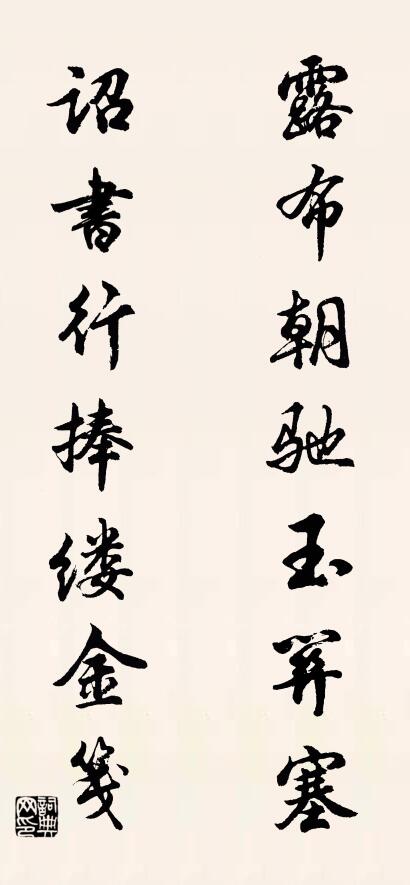 露布朝驰玉关塞
诏书行捧缕金笺
詞典网印